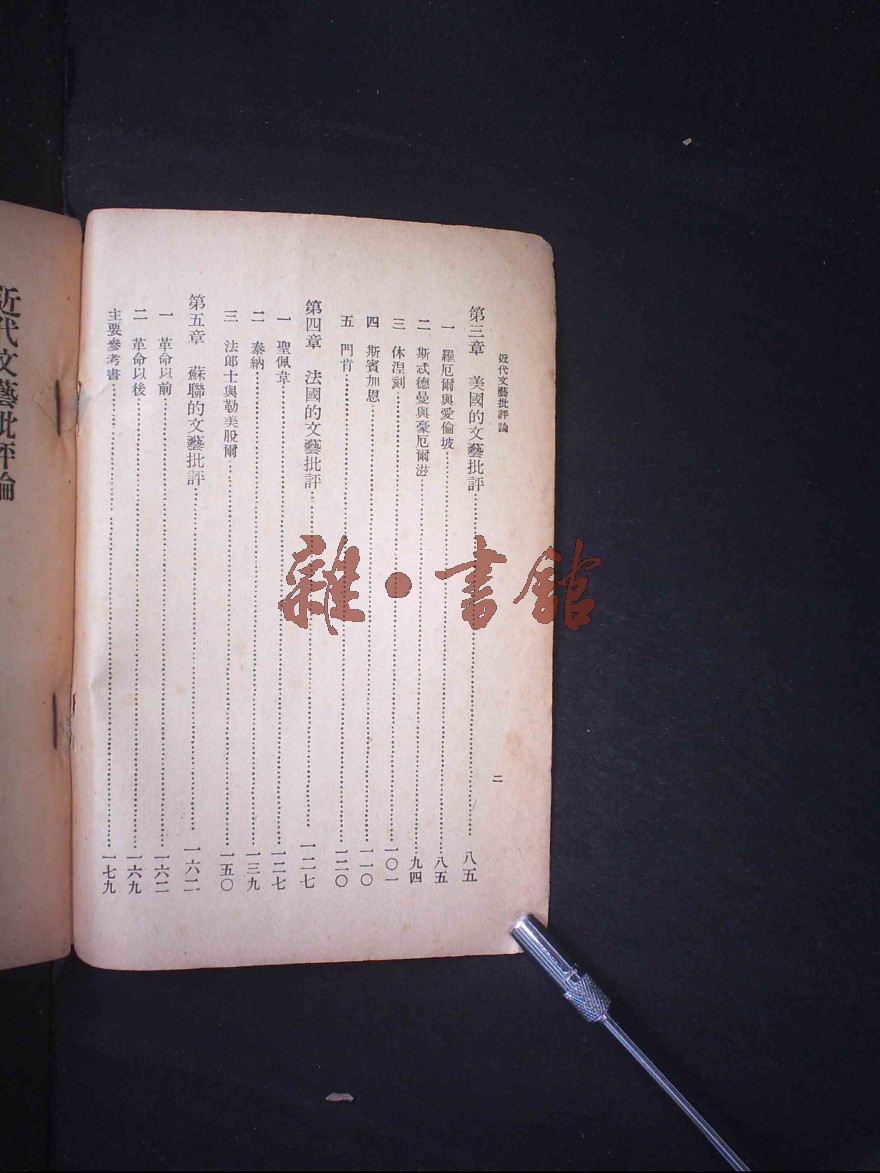 近代文藝批評論
二
第三章 美國的文藝批評 八五
一 羅厄爾與愛倫坡 八五
二 斯忒德曼與豪厄爾滋 九四
三 休涅刻 一〇一
四 斯賓加恩 一一〇
五 門肯 一二〇
第四章 法國的文藝批評 一二七
一 聖佩韋 一二七
二 泰納 一三九
三 法郎士與勒美脫爾 一五〇
第五章 蘇聯的文藝批評 一六二
一 革命以前 一六二
二 革命以後 一六九
主要參考書 一七九
近代文藝批評論
雜·書館